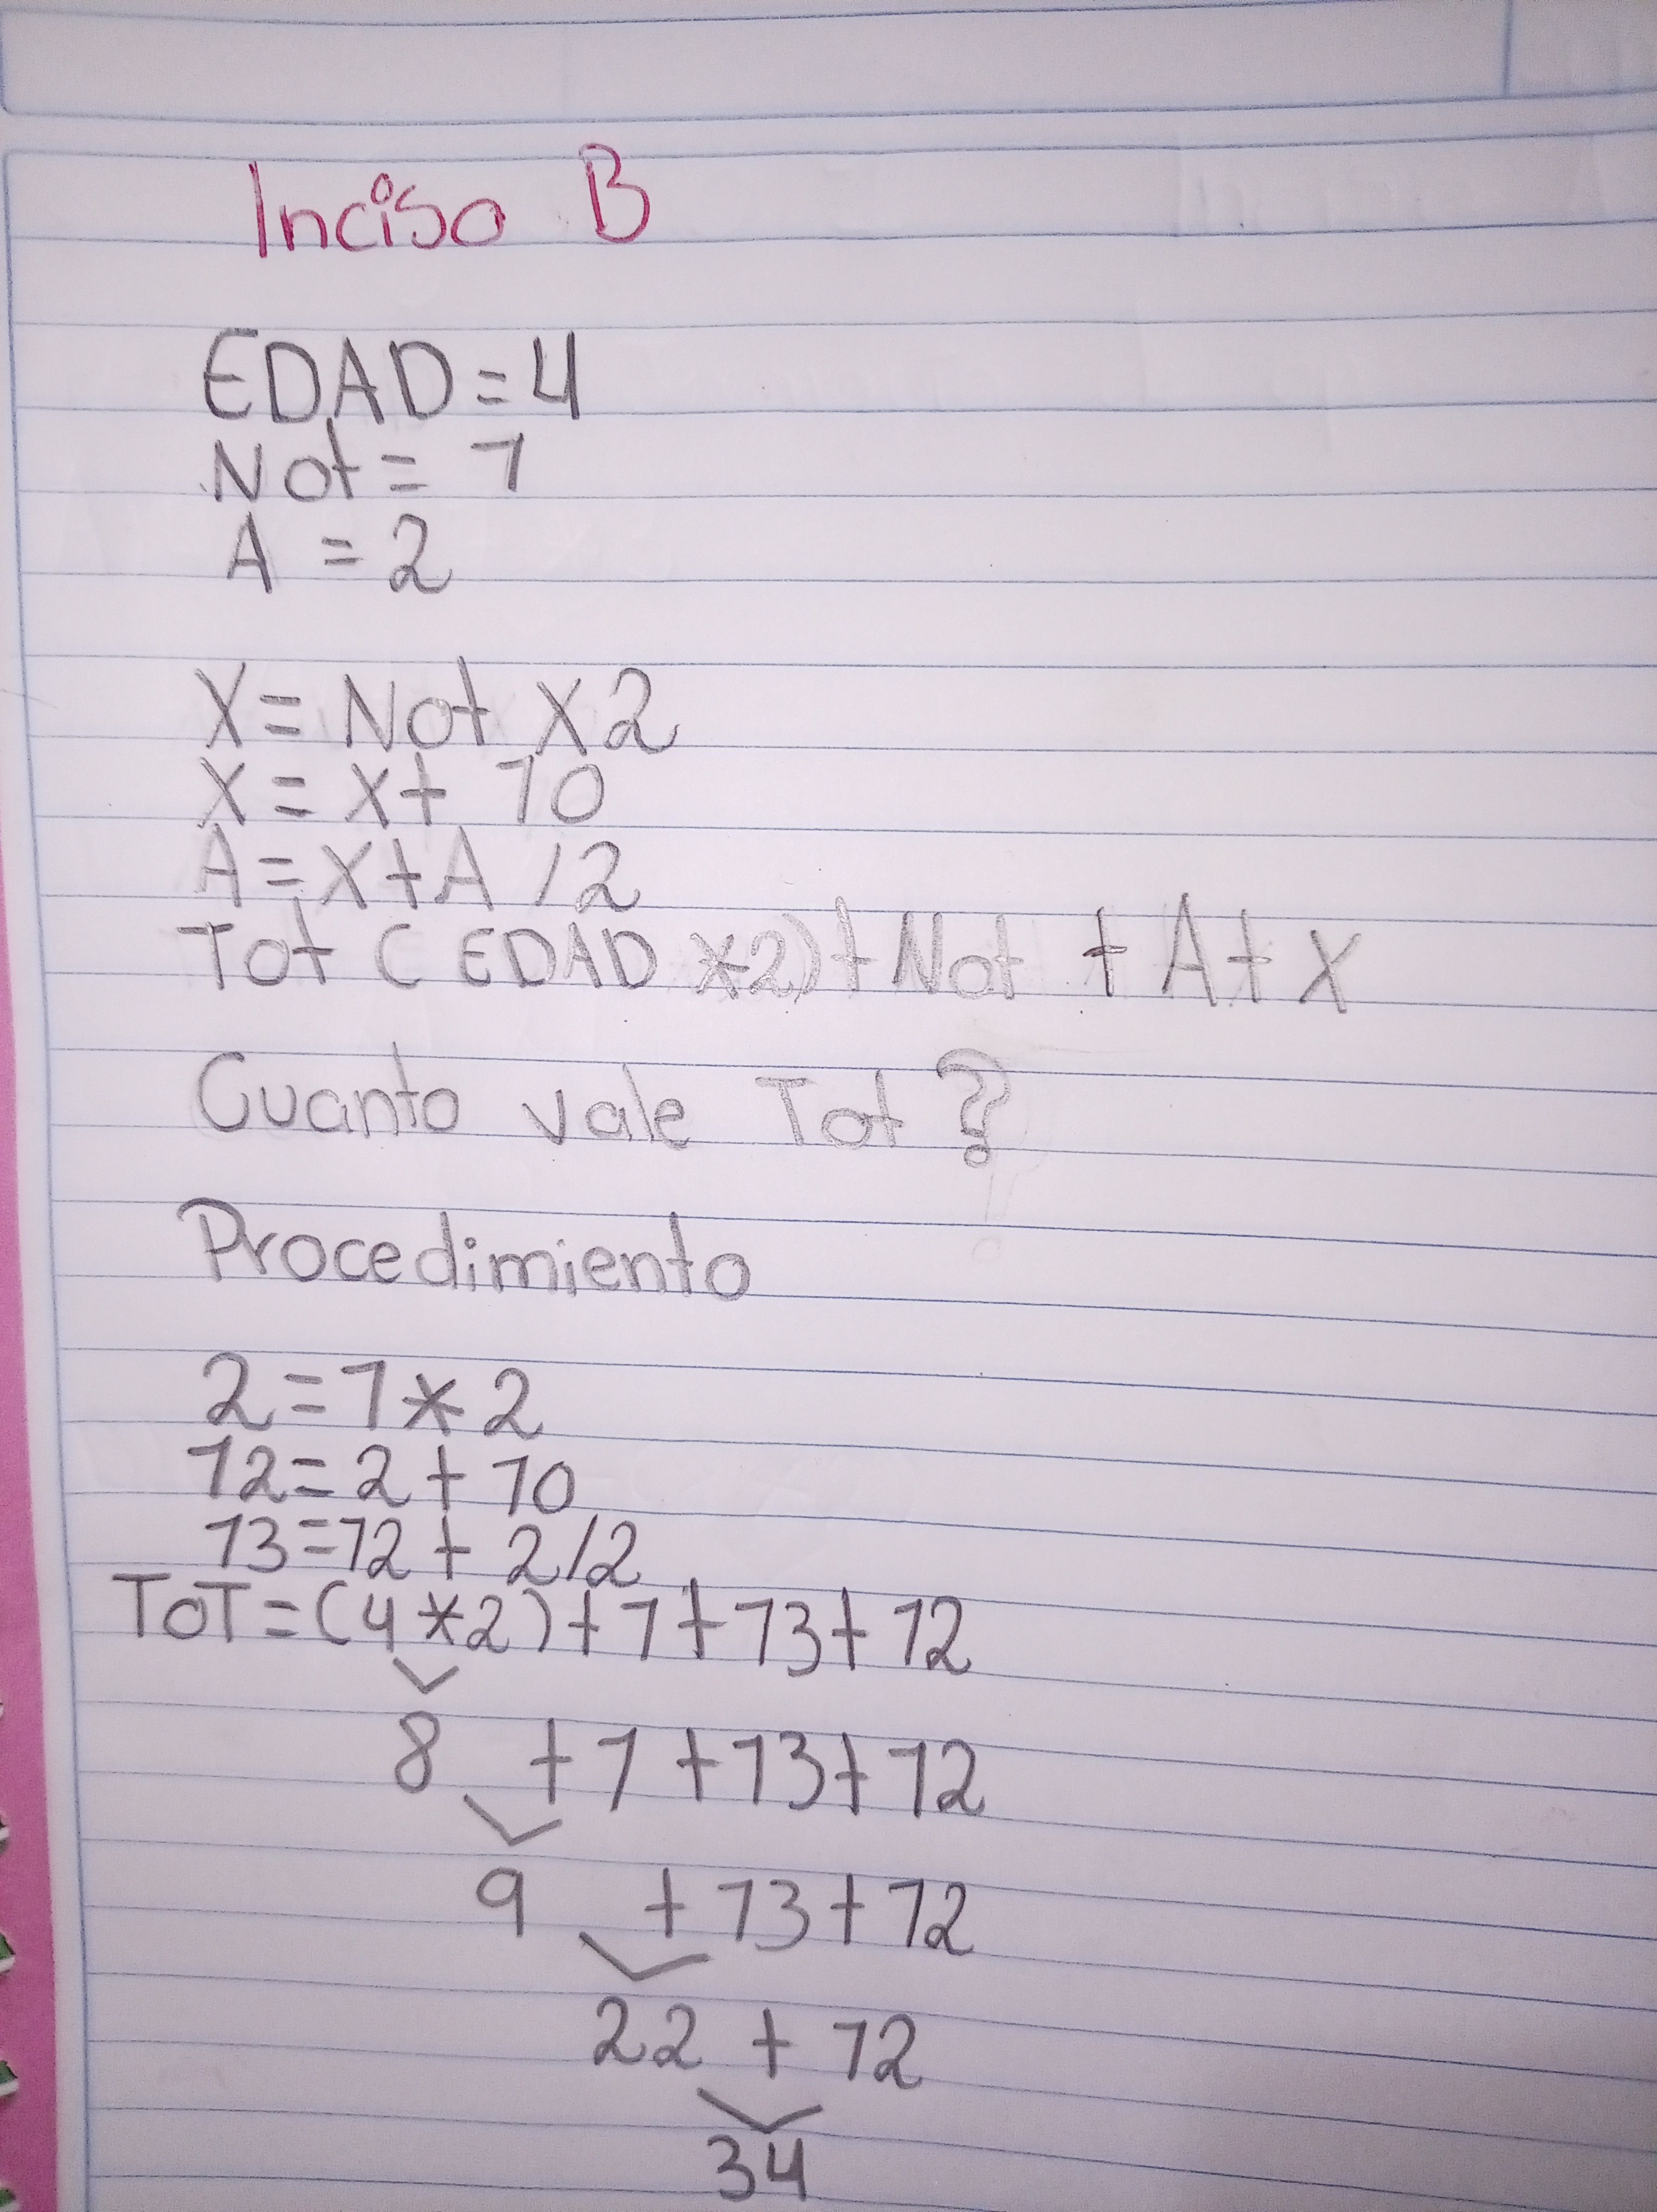 Inciso B
EDAD = 4
Not = 1
A = 2
X = Not X 2
X = X + 10
A = X + A / 2
Tot ( EDAD * 2) + Not + A + X
Cuanto vale Tot ?
Procedimiento
2 = 1 * 2
12 = 2 + 10
13 = 12 + 2 / 2
TOT = (4 * 2) + 1 + 13 + 12
8 + 1 + 13 + 12
9 + 13 + 12
22 + 12
34